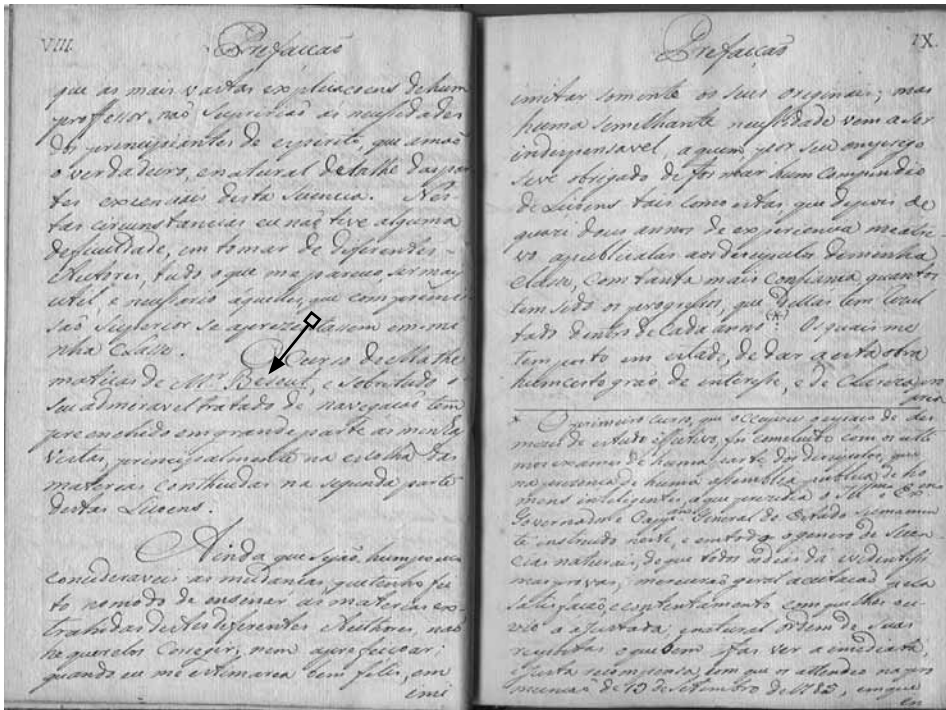 VIII.
Prefacçaõ
que as mais vastas explicaçoens de hum
professor, naõ supreriaõ as necessidades
dos principiantes de espirito, que amaõ
o verdadeiro, e natural detalhe das par
tes excenciais desta Siencia. Nes-
tas circunstancias eu naõ tive alguma
deficuldade, em tomar de diferentes
Authores, tudo o que me pareceo, ser mais
util, e necessario áqueles, que com
saõ superior se aprezentassem em mi
nha Classe. O Curso de Mathe
maticas de Mr. Beseut, e sobre tudo o
seu admiravel tratado de navegaçaõ tem
preenchido em grande parte as minhas
vistas, principalmente na escolha das
materias contheudas na segunda parte
destas Liçoens.
Ainda que sejaõ, hum pouco
consideraveis as mudanças, que tenho fei
to, no modo de ensinar as materias ex-
trahidas destes diferentes Authores, naõ
he querelos Corregir, nem aperfeiçoar;
quando eu me estimarea bem feliz, em
imi
IX.
Prefacçaõ
imitar somente os seus Originais; mas
huma semelhante necessidade vem a ser
indespensavel, a quem por seu emprego
seve obrigado de formar hum Compendio
de Liçoens tais como estas, que depois de
quazi dous annos de experiencia me atre
vo a publicalas aos descipulos de minha
Classe, com tanta mais confiança, quantos
tem sido os progressos, que dellas tem rezul
tado dentro de cada anno (*). Os quais me
tem posto em estado, de dar a esta obra
hum certo grao de interesse, e de Clareza,
* O primeiro curso, que occupou o espaço de des
mezes de estudo efectivo, foi concluido com os ulti
mos exames de huma parte dos descipulos, que
na prezença de huma assemblea publica, de ho
mens inteligentes, a que prezedia o Illmo e Exmo
Governador e Cappam General do Estado
te instruido neste, e em todo o genero de Scien
cias naturais, de que todos
mas provas; mereceraõ geral aceitaçaõ, pela
satisfaçaõ, e contentamento, com que lhes ou
vio a ajustada, e natural ordem de suas
repostas o que bem fas ver a emediata,
e justa recompensa, com que os attendeo na pro
mençaõ de 13 de Setembro de 1783, em que
en